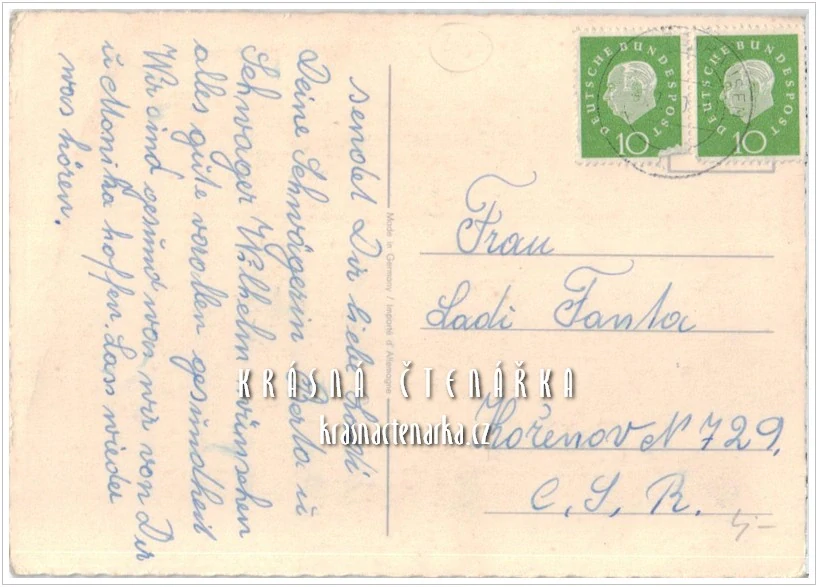 sendet Dir liebe Ladi
Deine Schwägerin Berta u
Schwager Wilhelm wünschen
alles gute vorallen gesundheit
Wir sind gesund was wir von Dir
u Monika hoffen. Lass wieder
was hören.
Made in Germany / Importé d'Allemagne
DEUTSCHE BUNDESPOST
10
DEUTSCHE BUNDESPOST
10
Frau
Ladi Fanta
Kořenov N 729.
C. S. R.
KRÁSNÁ ČTENÁŘKA
krasnactenarka.cz